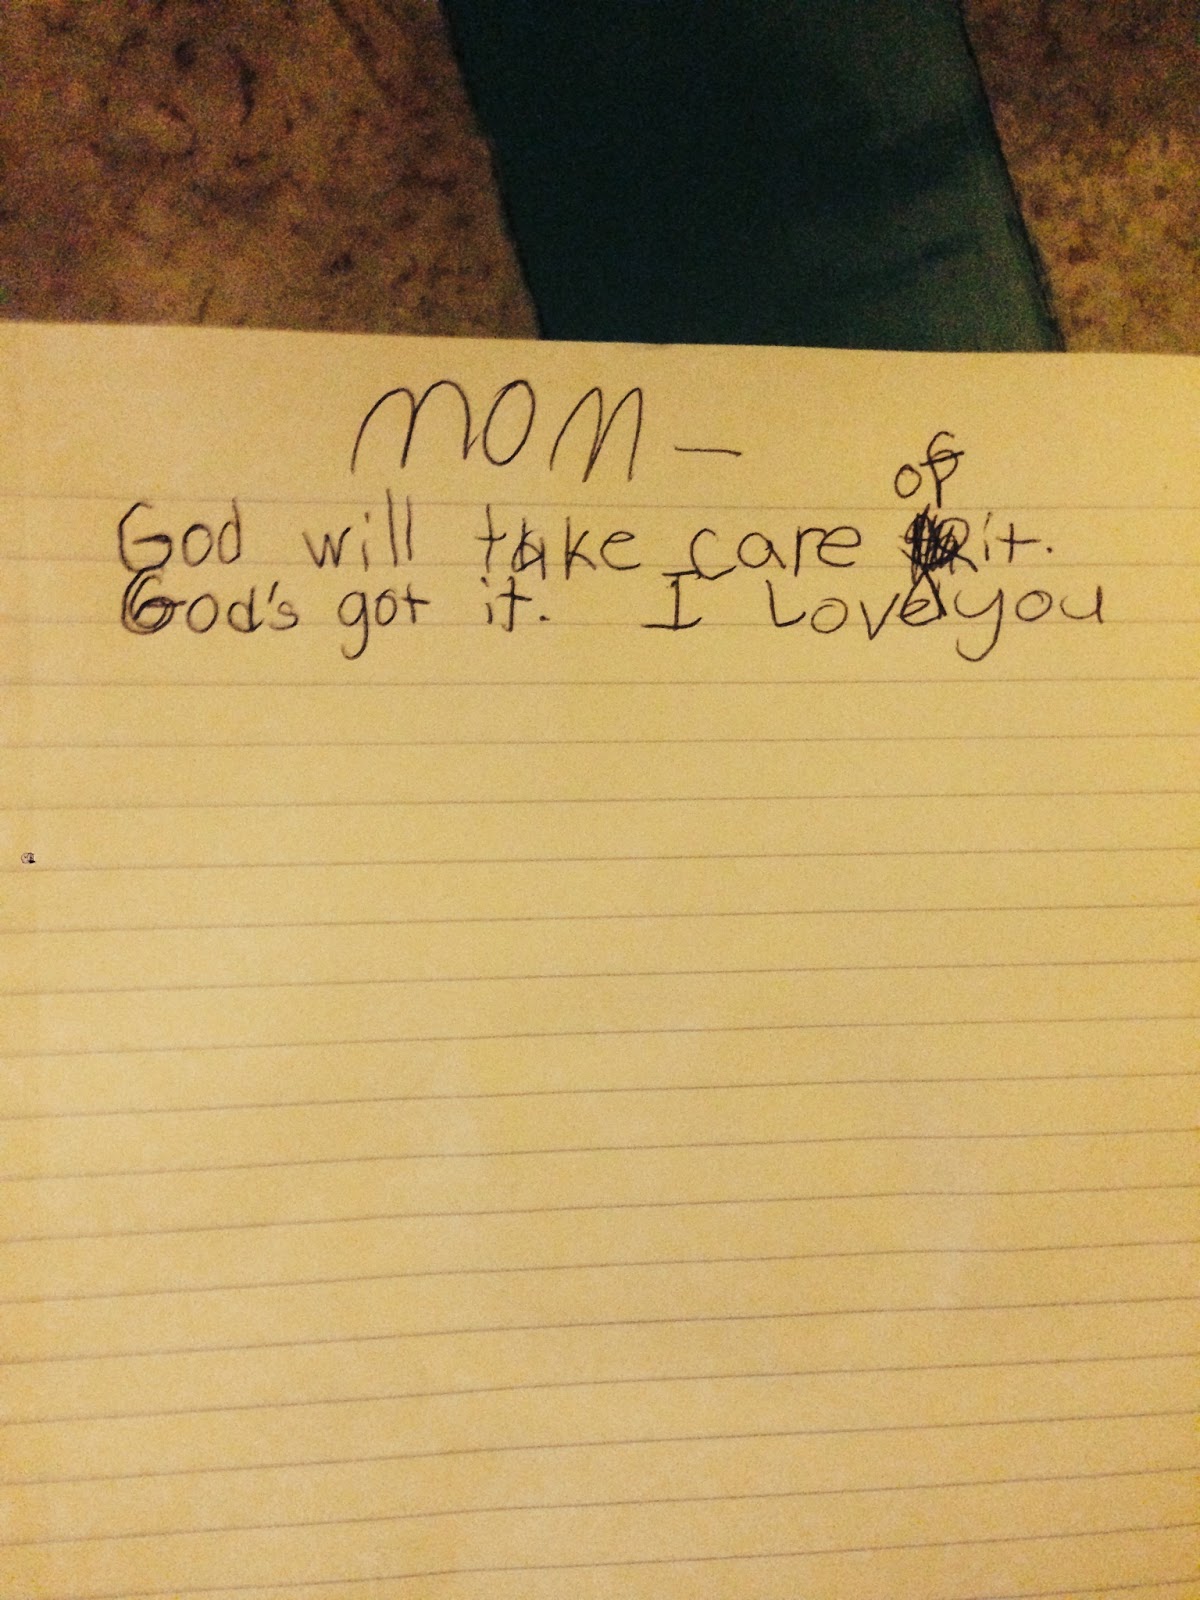 MOM —
God will take care of it.
God's got it. I Love you